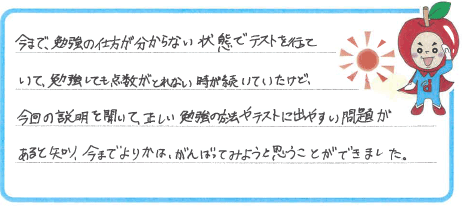 今まで、勉強の仕方が分からない状態でテストを行って
いて、勉強しても点数がとれない時が続いていたけど、
今回の説明を聞いて、正しい勉強の方法やテストに出やすい問題が
あると知り、今までよりかは、がんばってみようと思うことができました。
d